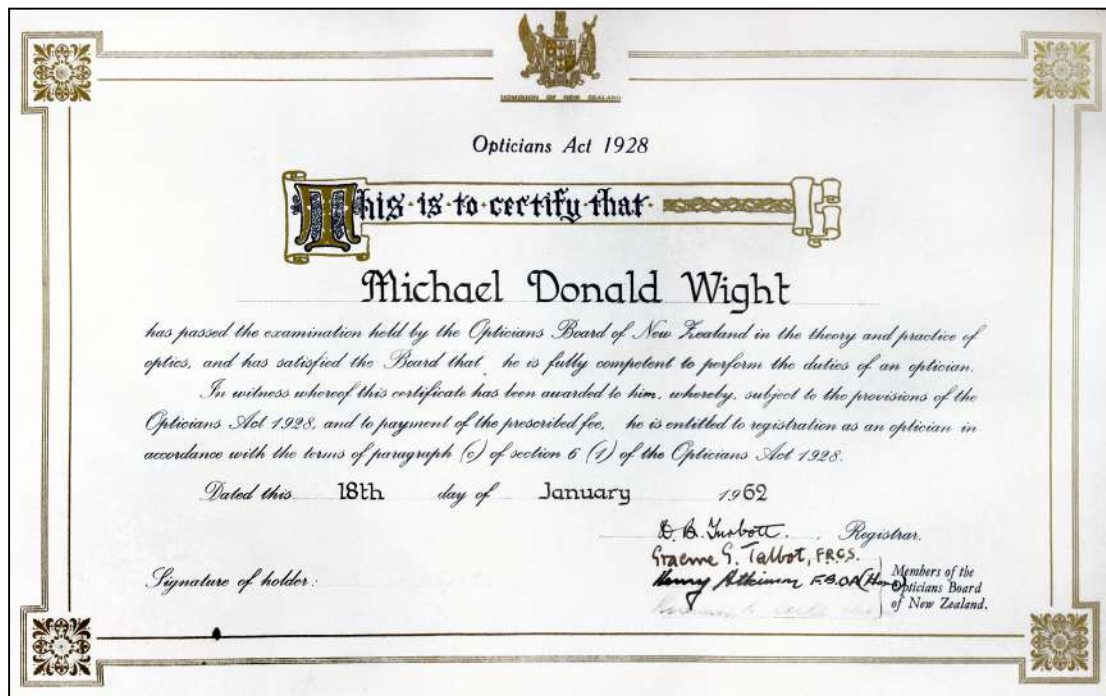 DOMINION OF NEW ZEALAND
Opticians Act 1928
This·is·to·certify·that·
Michael Donald Wight
has passed the examination held by the Opticians Board of New Zealand in the theory and practice of
optics, and has satisfied the Board that he is fully competent to perform the duties of an optician.
In witness whereof this certificate has been awarded to him, whereby, subject to the provisions of the
Opticians Act 1928, and to payment of the prescribed fee, he is entitled to registration as an optician in
accordance with the terms of paragraph (c) of section 6 (1) of the Opticians Act 1928.
Dated this 18th day of January 1962
Turbott. Registrar.
Graeme G. Talbot, F.R.C.S.
Henry Atkinson F.B.O.A (Hons)
Members of the
Opticians Board
of New Zealand.
Signature of holder: